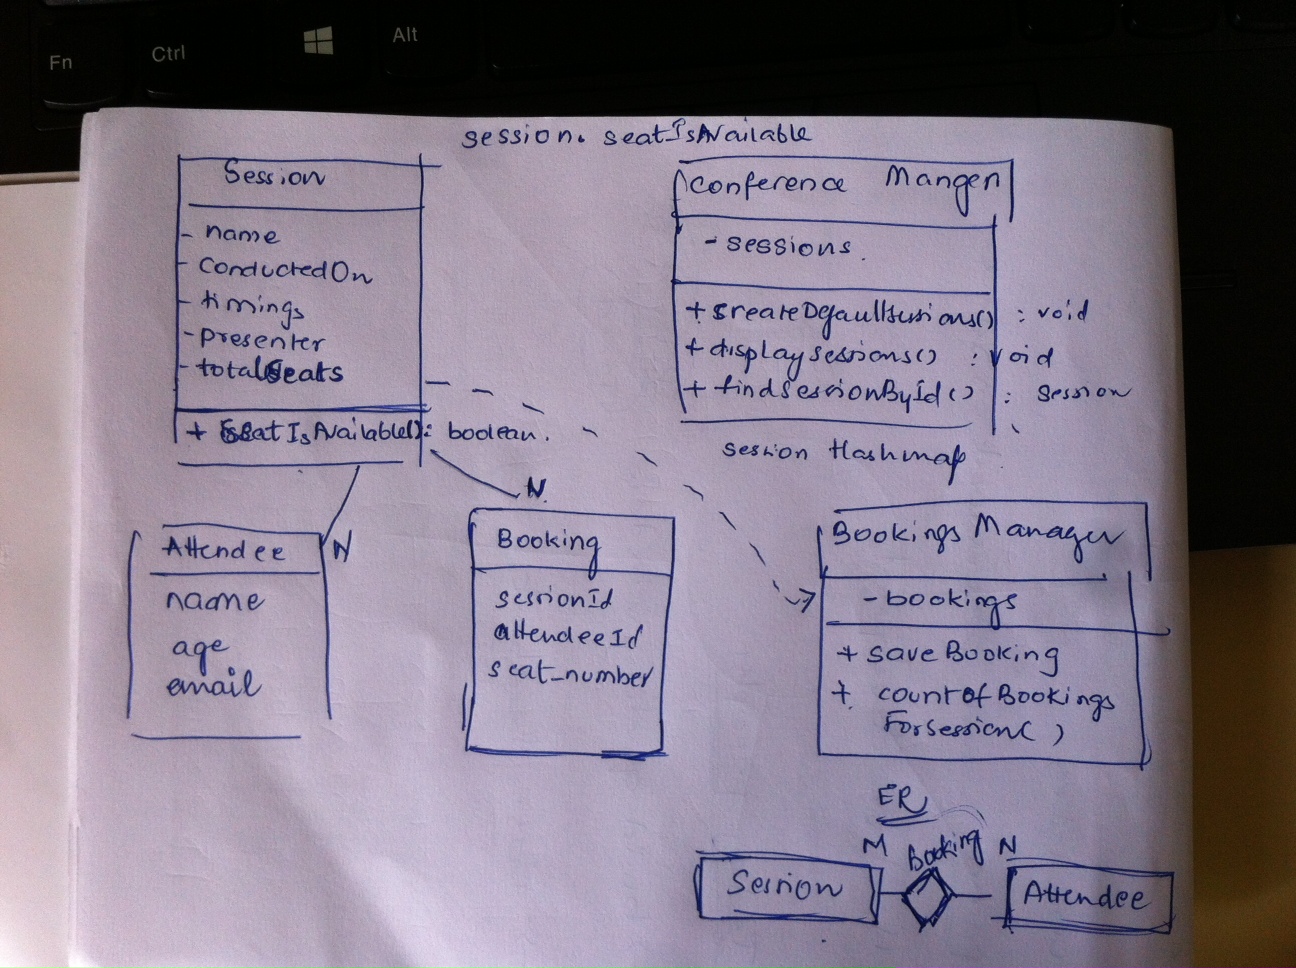 Fn
Ctrl
Alt
session. seatIsAvailable
Session
- name
- ConductedOn
- timings
- presenter
- totalSeats
+ seatIsAvailable(): boolean.
Conference Manger
- sessions.
+ createDefaultSessions() : void
+ displaySessions() : void
+ findSessionById() : session
session Hashmap
N
N
Attendee
name
age
email
Booking
sessionId
attendeeId
seat_number
Bookings Manager
- bookings
+ saveBooking
+ countOfBookings
ForSession( )
ER
M Booking N
Session
Attendee